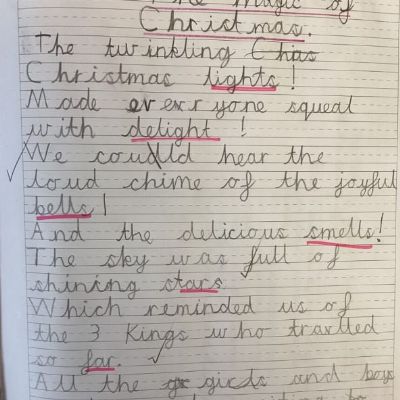 The Magic of
Christmas.
The twinkling Chas
Christmas lights!
Made everyone squeal
with delight!
We could hear the
loud chime of the joyful
bells!
And the delicious smells!
The sky was full of
shining stars
Which reminded us of
the 3 Kings who travlled
so far.
All the girls and boys
to